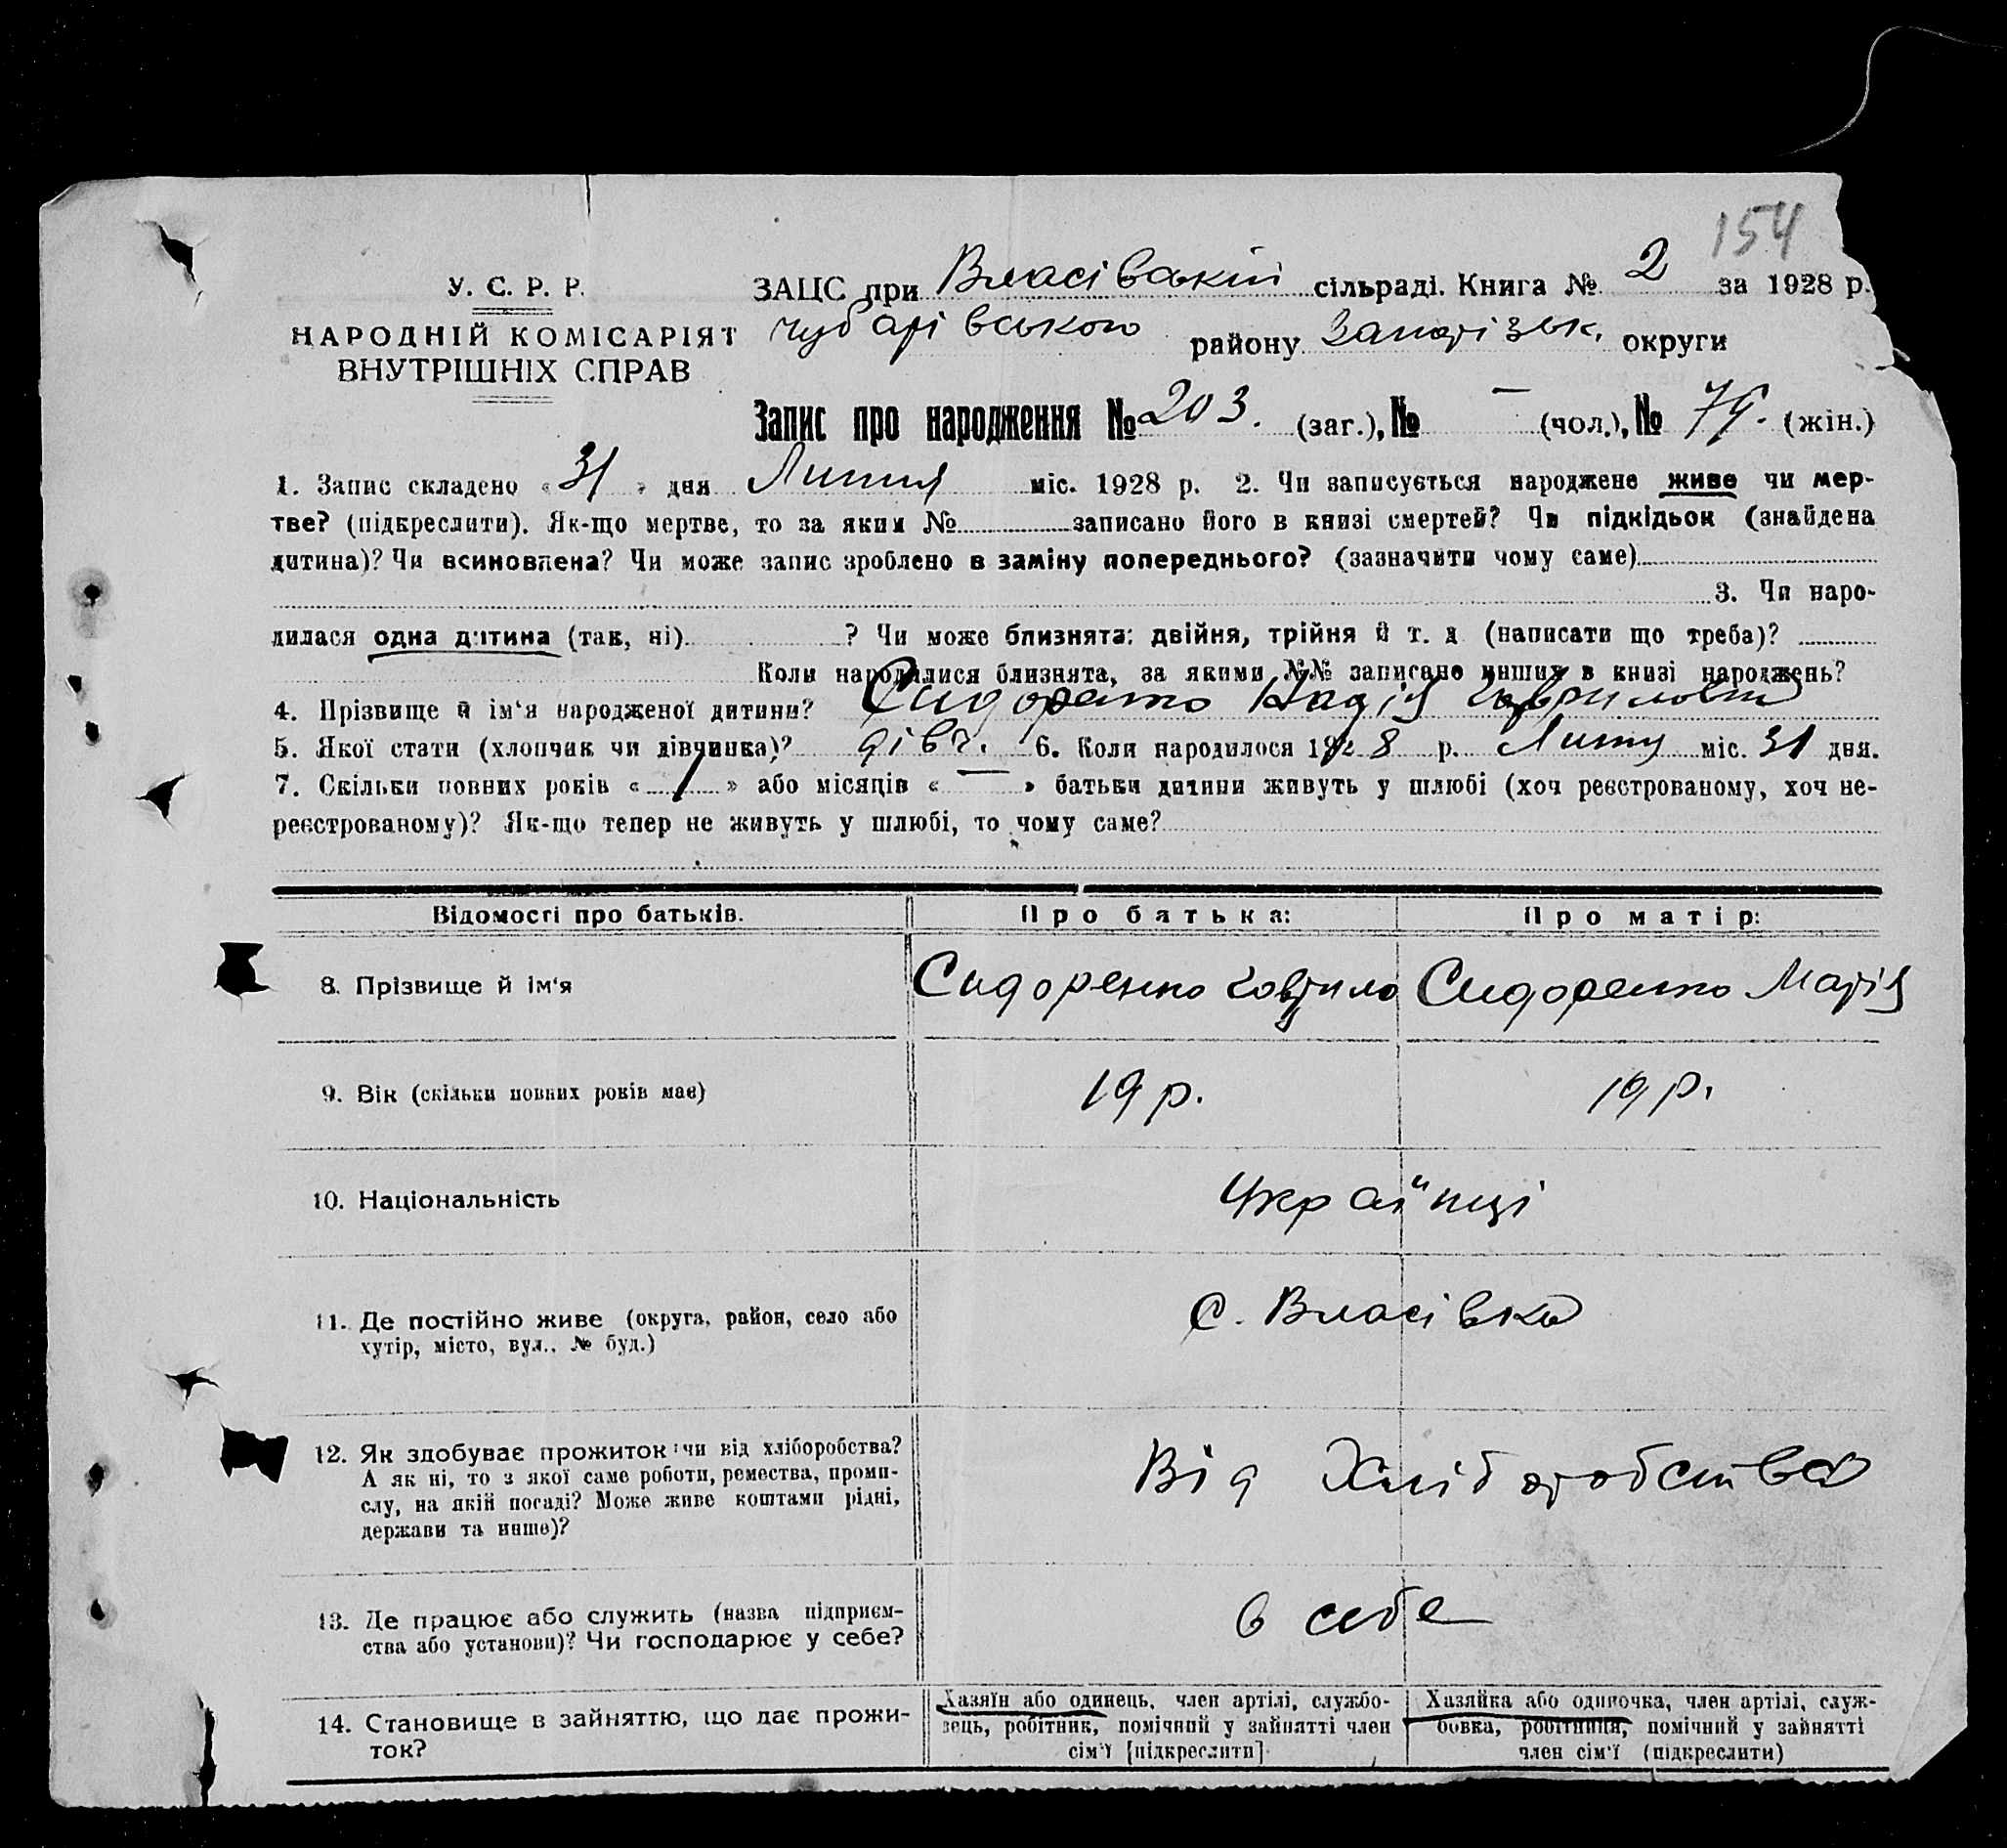 154
У. С. Р. Р.
НАРОДНІЙ КОМІСАРІЯТ
ВНУТРІШНІХ СПРАВ
ЗАЦС при Власівській сільраді. Книга № 2 за 1928 р.
Чубарівського району Запорізьк. округи
Запис про народження № 203. (заг.), № — (чол.), № 79. (жін.)
1. Запис складено « 31 » дня Липня міс. 1928 р. 2. Чи записується народжене живе чи мер-
тве? (підкреслити). Як-що мертве, то за яким № записано його в книзі смертей? Чи підкідьок (знайдена
дитина)? Чи всиновлена? Чи може запис зроблено в заміну попереднього? (зазначити чому саме)
3. Чи наро-
дилася одна дитина (так, ні) ? Чи може близнята: двійня, трійня й т. д (написати що треба)?
Коли народилися близнята, за якими №№ записано инших в книзі народжень?
4. Прізвище й ім'я народженої дитини? Сидоренко Надія Гавриловна
5. Якої стати (хлопчик чи дівчинка)? дівч. 6. Коли народилося 1928 р. Липня міс. 31 дня.
7. Скільки повних років « 1 » або місяців « — » батьки дитини живуть у шлюбі (хоч реєстрованому, хоч не-
реєстрованому)? Як-що тепер не живуть у шлюбі, то чому саме?
Відомості про батьків. Про батька: Про матір:
8. Прізвище й ім'я Сидоренко Гаврило Сидоренко Марія
9. Вік (скільки повних років має) 19 р. 19 р.
10. Національність Українці
11. Де постійно живе (округа, район, село або
хутір, місто, вул., № буд.) С. Власівка
12. Як здобуває прожиток: чи від хліборобства?
А як ні, то з якої саме роботи, ремества, проми-
слу, на якій посаді? Може живе коштами рідні,
держави та инше)? Від Хліборобства
13. Де працює або служить (назва підприєм-
ства або установи)? Чи господарює у себе? в себе
14. Становище в зайняттю, що дає прожи-
ток?
Хазяїн або одинець, член артілі, службо-
вець, робітник, помічний у зайнятті член
сім'ї [підкреслити]
Хазяйка або одиночка, член артілі, служ-
бовка, робітниця, помічний у зайнятті
член сім'ї (підкреслити)